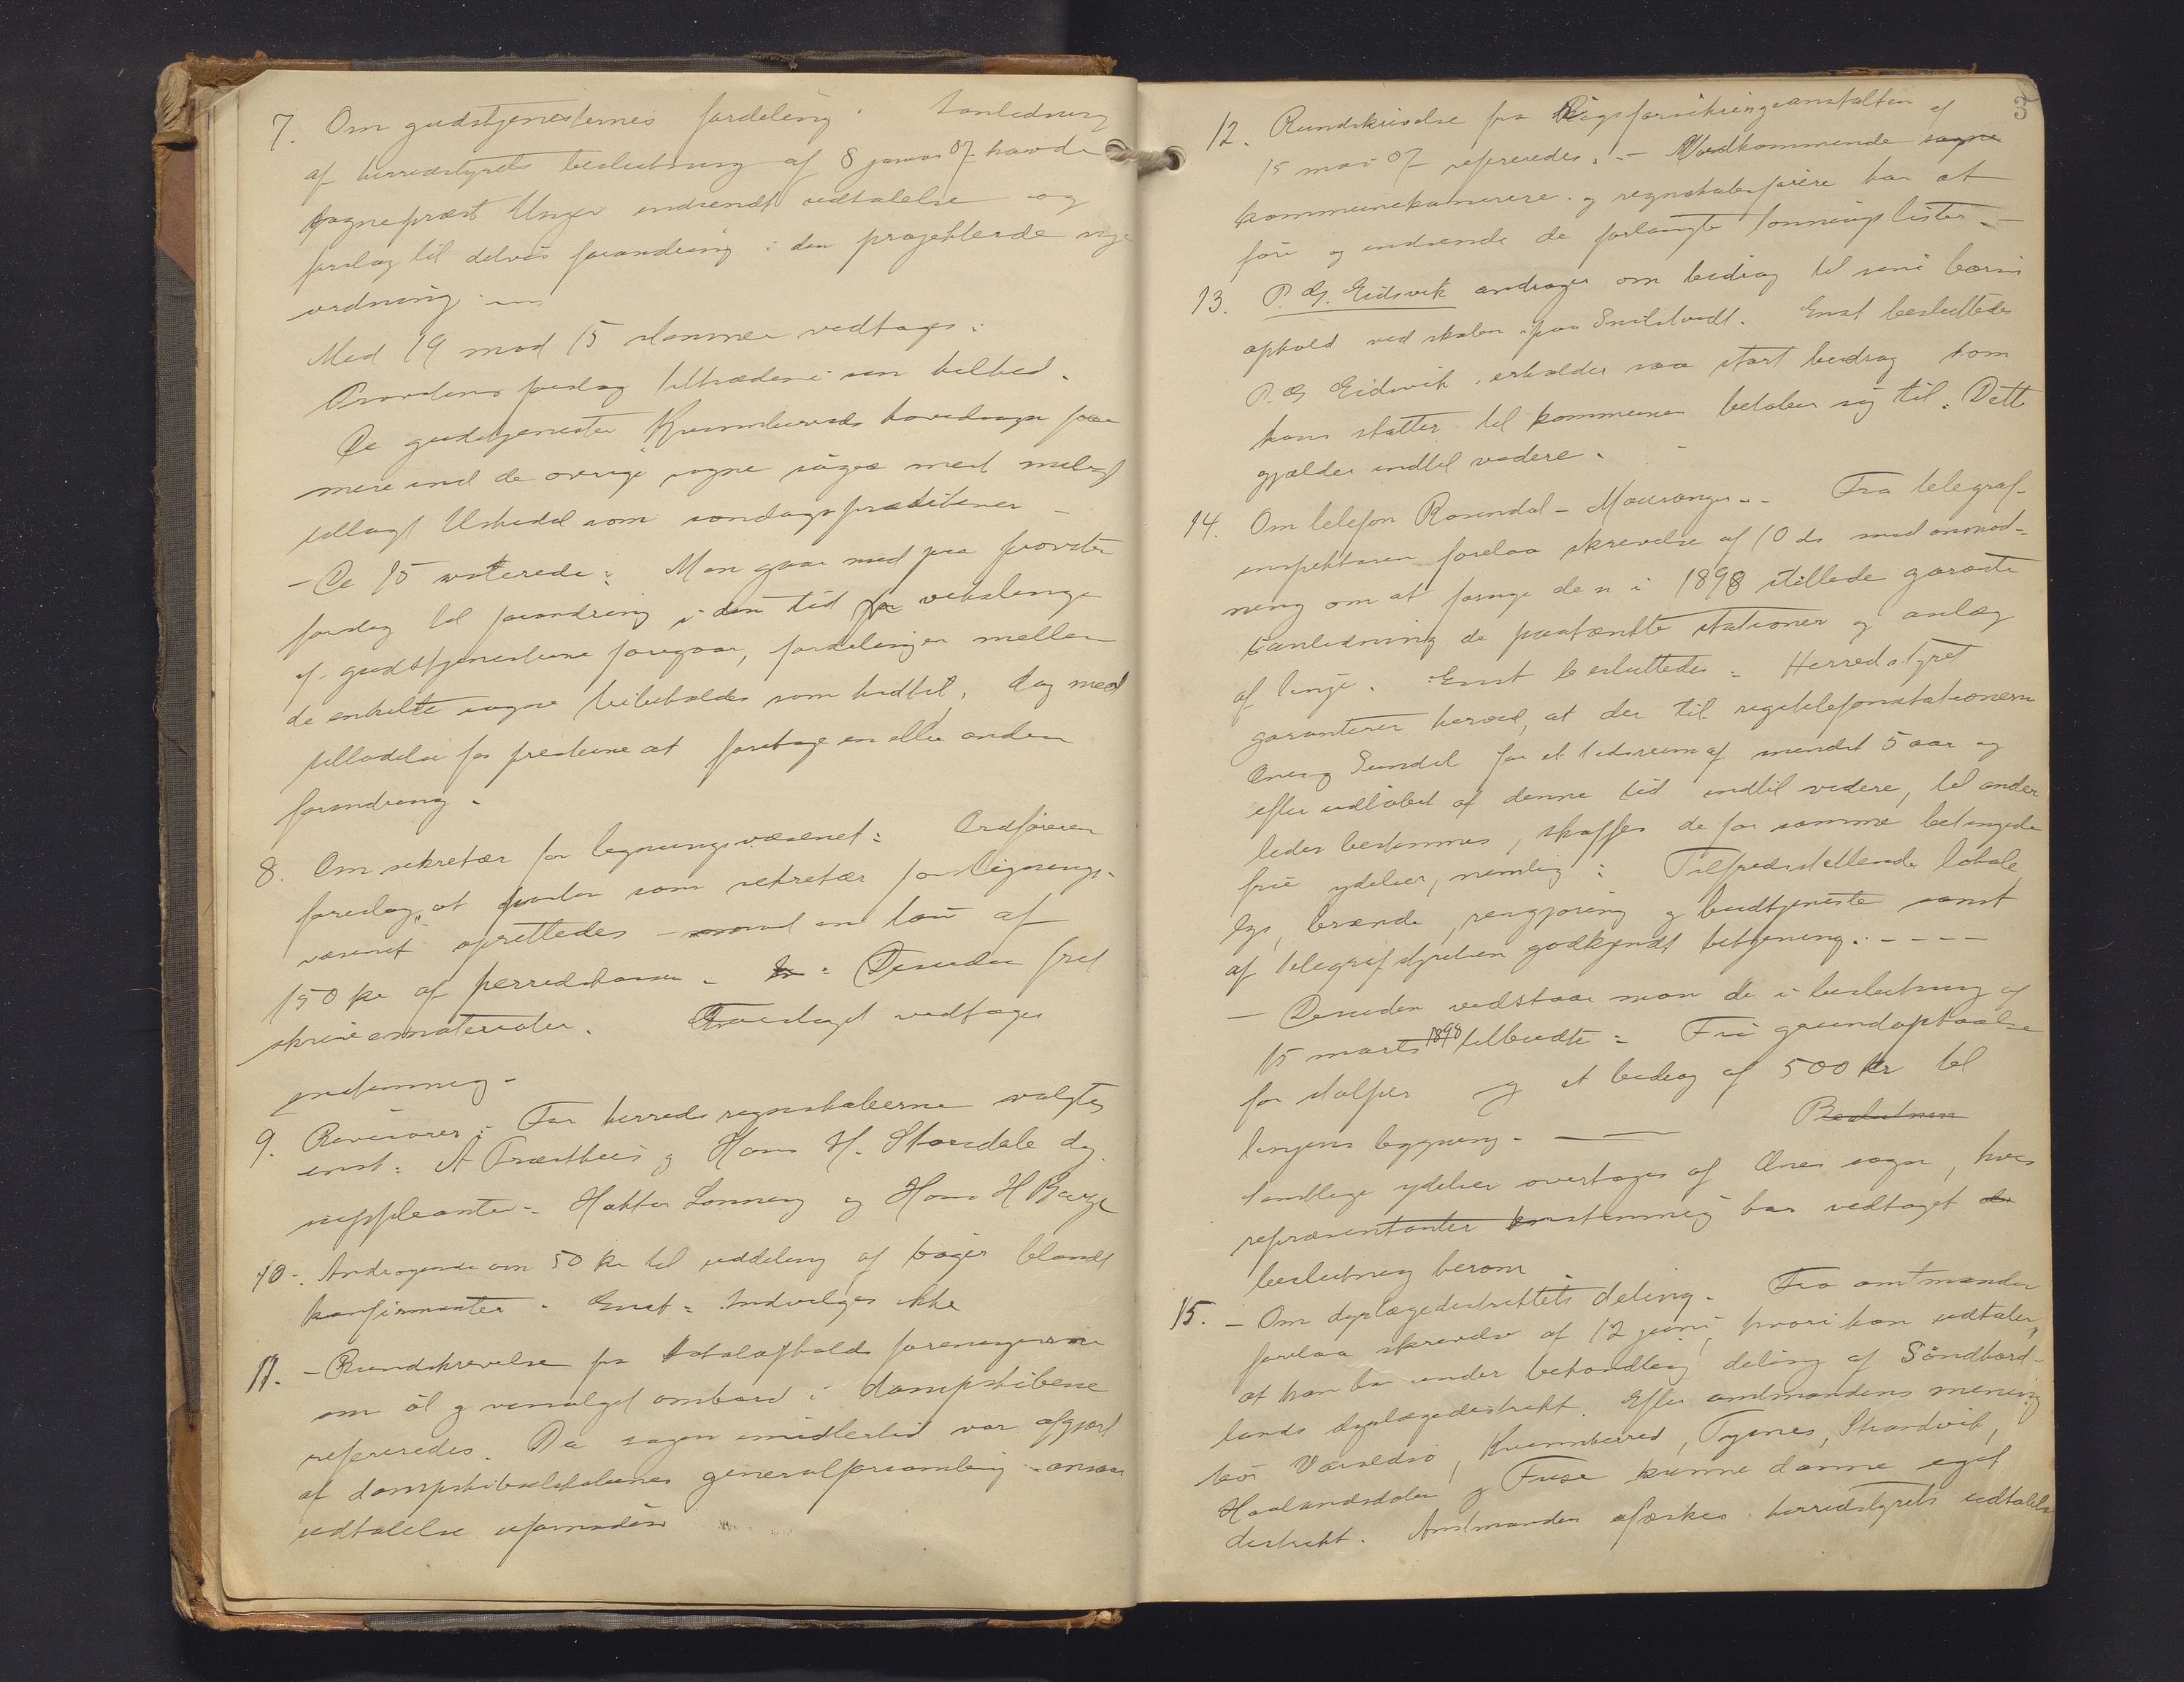 7. Om gudstjenesternes fordeling. I anledning
af herredstyrets beslutning af 8 januar 07 havde
sogneprest Unger indsendt udtalelse og
forslag til delvis forandring i den projekterede nye
ordning. —
Med 19 mod 15 stemmer vedtages:
Provstens forslag tiltrædes i sin helhed.
De gudstjenester Kvinnherreds hovedsogn faar
mere end de øvrige sogne søges mest muligt
udlagt Uskedal som søndagsprækener —
— De 15 voterede: Man gaar med paa provsten
forslag til forandring i den tid for vekslinge
af gudstjenesterne foregaar, fordelingen mellem
de enkelte sogne beibeholdes som hidtil, dog med
tilladelse for presterne at foretage en eller anden
forandring.
8. Om sekretær for ligningsvæsenet: Ordføreren
foreslog, at posten som sekretær for lignings-
væsenet oprettedes — mod en løn af
150 kr af herredskassen. Desuden frit
skrivematerialer. Forslaget vedtages
enstemmig.
9. Revisorer: For herredsregnskaberne valgtes
enst: A Præsthus og Hans H. Skorsdale dy.
suppleanter: Haktor Lønning og Hans H Berge
10. Andragende om 50 kr til uddeling af bøger blandt
konfirmanter. Enst: Indvilges ikke
11. — Rundskrivelse fra Totalafholdsforeningerne
om øl og vinsalget ombord i dampskibene
refereredes. Da sagen imidlertid var afgjort
af dampskibsselskabernes generalforsamling ansaaes
udtalelse ufornøden
3
12. Rundskrivelse fra Rigsforsikringsanstalten af
15 mai 07 refereredes. — Vedkommende sogne
kommunekasserere og regnskabsførere har at
føre og indsende de forlangte lønningslister. —
13. P. G. Eidsvik andrager om bidrag til sine børns
ophold ved skolen paa Snilstvedt. Enst besluttedes
P. G Eidsvik erholder saa stort bidrag som
hans skatter til kommunen beløber sig til. Dette
gjælder indtil videre.
14. Om telefon Rosendal — Mauranger. — Fra telegraf-
inspektøren forelaa skrivelse af 10 ds med anmod-
ning om at fornye den i 1898 stillede garanti
i anledning de paatænkte stationer og anlæg
af linje. Enst besluttedes: Herredstyret
garanterer herved, at der til rigstelefonstationerne
Ænes og Sundal for et tidsrum af mindst 5 aar og
efter udløbet af denne tid indtil videre, til ander
ledes bestemmes, skaffes de for samme betingede
frie ydelser, nemlig: Tilfredsstillende lokale,
lys, brænde, rengjøring og budtjeneste samt
af telegrafstyrelsen godkjendt betjening. — — —
— Desuden vedstaar man de i beslutning af
15 marts 1898 tilbudte: Fri grundoptaalse
for stolper og et bidrag af 500 kr til
linjens bygning. — Beslutnin
samtlige ydelser overtages af Ænes sogn, hvis
repræsentanter enstemmig har vedtaget de
beslutning herom.
15. — Om dyrlægedistriktets deling. Fra amtmanden
forelaa skrivelse af 12 juni, hvori han udtaler,
at han har under behandling deling af Søndhord-
lands dyrlægedistrikt. Efter amtmandens mening
bør Varaldsø, Kvinnherred, Tysnes, Strandvik,
Haalandsdalen og Fuse kunne danne eget
distrikt. Amtmanden afæsker herredstyrets udtalelse